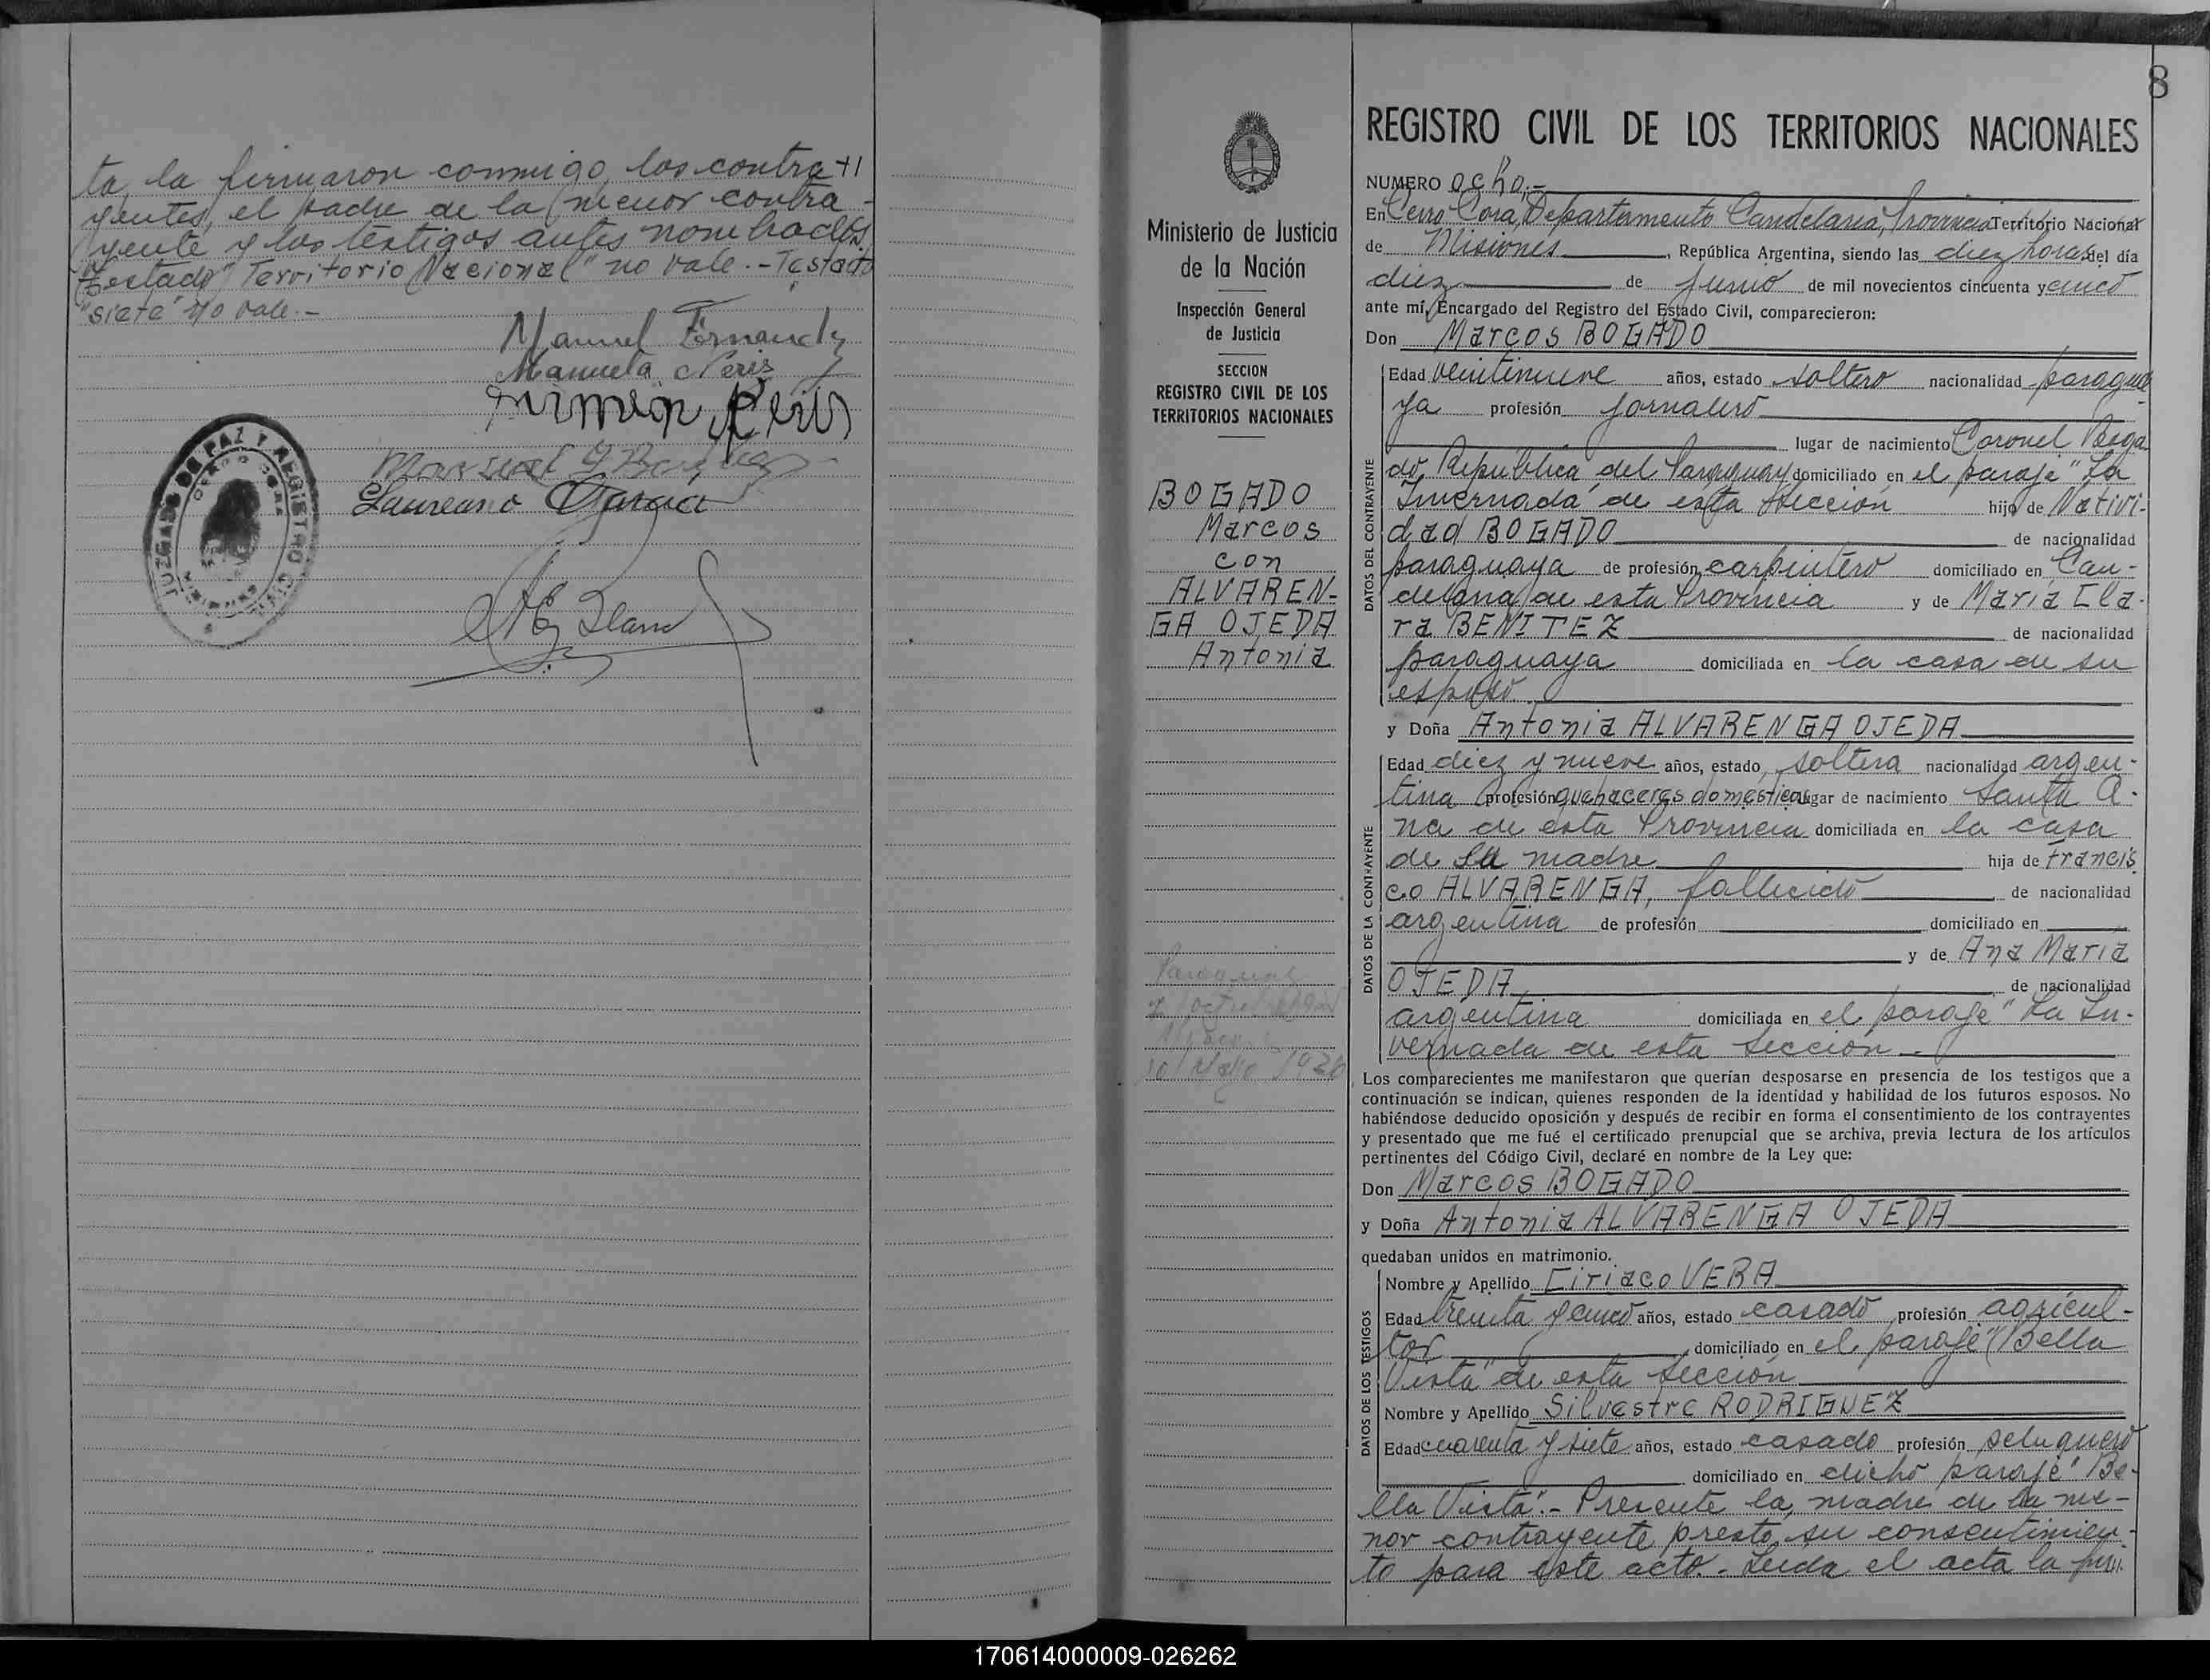 ta la firmaron conmigo los contra
yentes, el padre de la menor contra-
yente y los testigos antes nombrados.
Testado "Territorio Nacional" no vale.- Testado
"siete" no vale.-
Manuel Fernandez
Manuela Peris
Laureano Garcia
JUZGADO DE PAZ Y REGISTRO CIVIL
CERRO CORA
MISIONES
8
Ministerio de Justicia
de la Nación
Inspección General
de Justicia
SECCION
REGISTRO CIVIL DE LOS
TERRITORIOS NACIONALES
BOGADO
Marcos
con
ALVAREN-
GA OJEDA
Antonia
REGISTRO CIVIL DE LOS TERRITORIOS NACIONALES
NUMERO ocho.-
En Cerro Corá, Departamento Candelaria, Provincia Territorio Nacional
de Misiones, República Argentina, siendo las diez horas del día
diez de Junio de mil novecientos cincuenta y cinco
ante mí, Encargado del Registro del Estado Civil, comparecieron:
Don Marcos BOGADO
DATOS DEL CONTRAYENTE
Edad veintinueve años, estado soltero nacionalidad paragua
ya profesión jornalero
lugar de nacimiento Coronel Boga
do República del Paraguay domiciliado en el paraje "La
Invernada" de esta Sección hijo de Nativi-
dad BOGADO de nacionalidad
paraguaya de profesión carpintero domiciliado en Can-
delaria de esta Provincia y de María Cla-
ra BENITEZ de nacionalidad
paraguaya domiciliada en la casa de su
esposo.
y Doña Antonia ALVARENGA OJEDA
DATOS DE LA CONTRAYENTE
Edad diez y nueve años, estado soltera nacionalidad argen-
tina profesión quehaceres domésticos lugar de nacimiento Santa A-
na de esta Provincia domiciliada en la casa
de su madre hija de Francis
co ALVARENGA, fallecido de nacionalidad
argentina de profesión domiciliado en
y de Ana María
OJEDA de nacionalidad
argentina domiciliada en el paraje "La In-
vernada de esta Sección.-
Los comparecientes me manifestaron que querían desposarse en presencia de los testigos que a
continuación se indican, quienes responden de la identidad y habilidad de los futuros esposos. No
habiéndose deducido oposición y después de recibir en forma el consentimiento de los contrayentes
y presentado que me fué el certificado prenupcial que se archiva, previa lectura de los artículos
pertinentes del Código Civil, declaré en nombre de la Ley que:
Don Marcos BOGADO
y Doña Antonia ALVARENGA OJEDA
quedaban unidos en matrimonio.
DATOS DE LOS TESTIGOS
Nombre y Apellido Ciriaco VERA
Edad treinta y cinco años, estado casado profesión agricul-
tor domiciliado en el paraje "Bella
Vista" de esta Sección
Nombre y Apellido Silvestre RODRIGUEZ
Edad cuarenta y siete años, estado casado profesión peluquero
domiciliado en dicho paraje "Be-
lla Vista".- Presente la madre de la me-
nor contrayente presto su consentimien-
to para este acto.- Leída el acta la
170614000009-026262